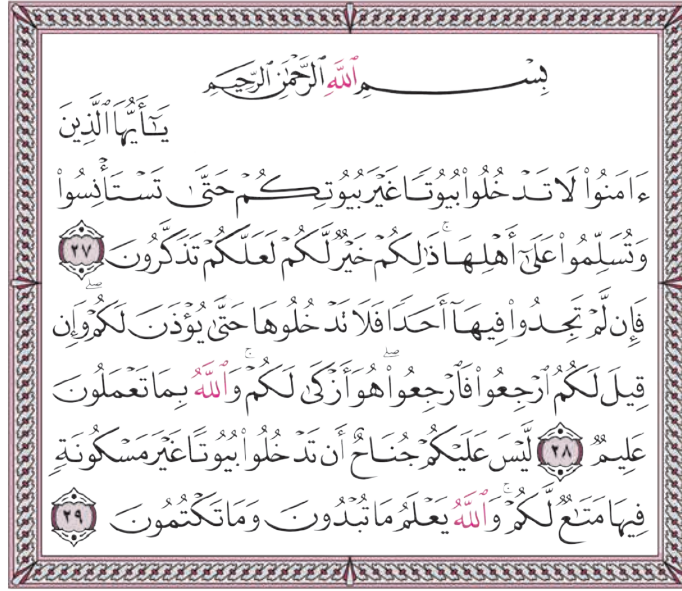 بِسْمِ ٱللَّهِ ٱلرَّحْمَٰنِ ٱلرَّحِيمِ
يَـٰٓأَيُّهَا ٱلَّذِينَ
ءَامَنُوا۟ لَا تَدْخُلُوا۟ بُيُوتًا غَيْرَ بُيُوتِكُمْ حَتَّىٰ تَسْتَأْنِسُوا۟
وَتُسَلِّمُوا۟ عَلَىٰٓ أَهْلِهَا ۚ ذَٰلِكُمْ خَيْرٌ لَّكُمْ لَعَلَّكُمْ تَذَكَّرُونَ ٢٧
فَإِن لَّمْ تَجِدُوا۟ فِيهَآ أَحَدًا فَلَا تَدْخُلُوهَا حَتَّىٰ يُؤْذَنَ لَكُمْ ۖ وَإِن
قِيلَ لَكُمُ ٱرْجِعُوا۟ فَٱرْجِعُوا۟ ۖ هُوَ أَزْكَىٰ لَكُمْ ۚ وَٱللَّهُ بِمَا تَعْمَلُونَ
عَلِيمٌ ٢٨ لَّيْسَ عَلَيْكُمْ جُنَاحٌ أَن تَدْخُلُوا۟ بُيُوتًا غَيْرَ مَسْكُونَةٍ
فِيهَا مَتَـٰعٌ لَّكُمْ ۚ وَٱللَّهُ يَعْلَمُ مَا تُبْدُونَ وَمَا تَكْتُمُونَ ٢٩